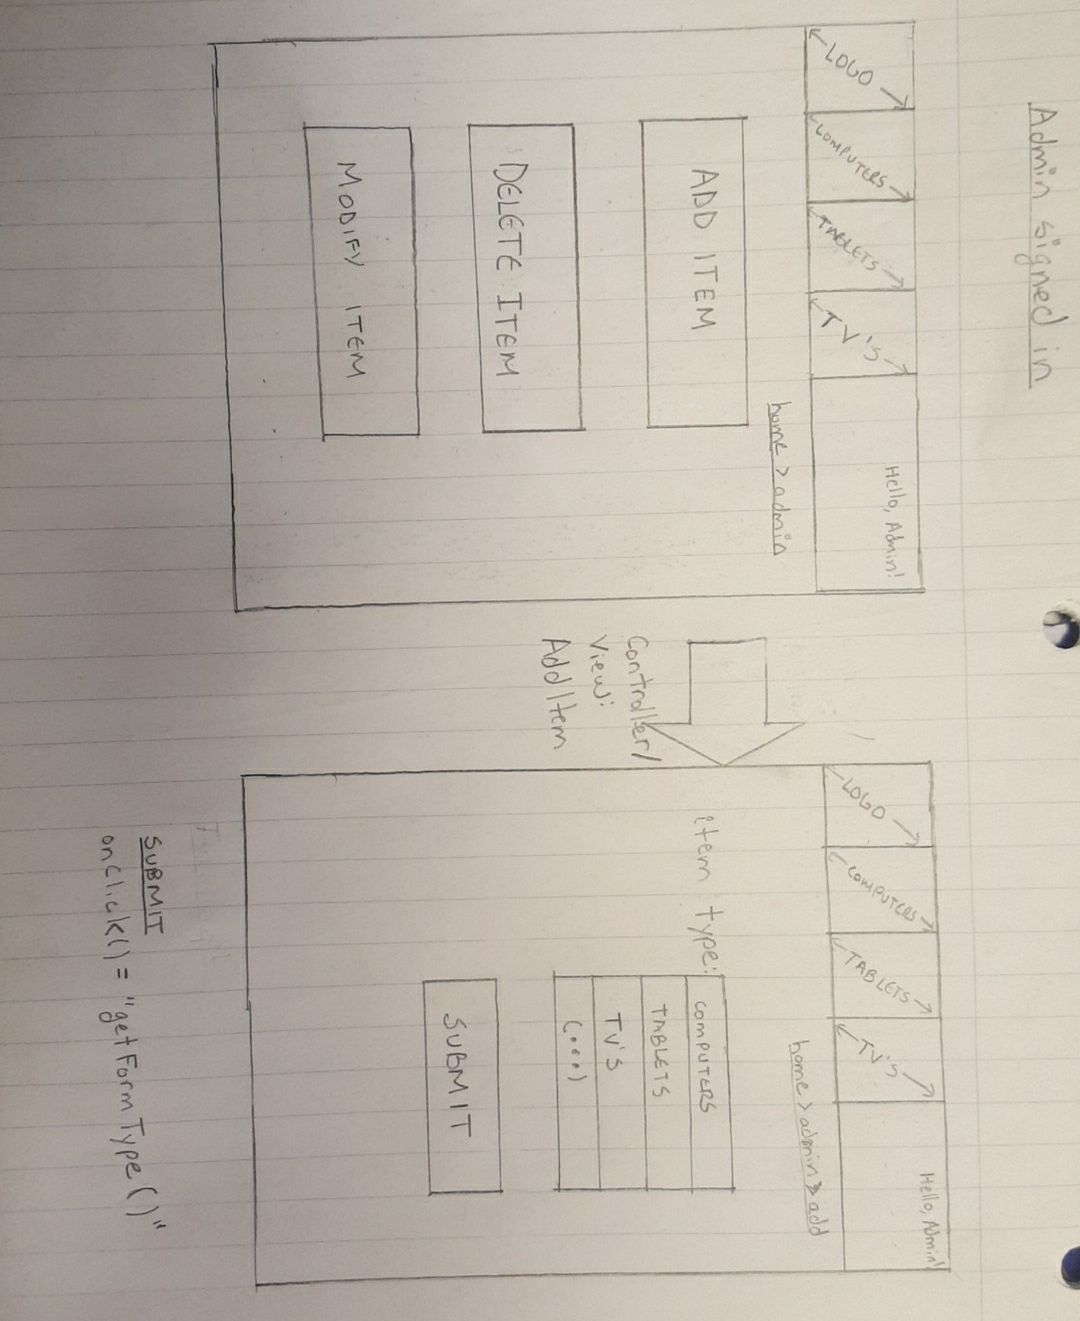 Admin signed in
LOGO
COMPUTERS
TABLETS
TV's
Hello, Admin!
home > admin
ADD ITEM
DELETE ITEM
MODIFY ITEM
Controller/
View:
AddItem
LOGO
COMPUTERS
TABLETS
TV's
Hello, Admin!
home > admin > add
item type:
COMPUTERS
TABLETS
TV'S
(...)
SUBMIT
SUBMIT
onclick() = "getFormType()"